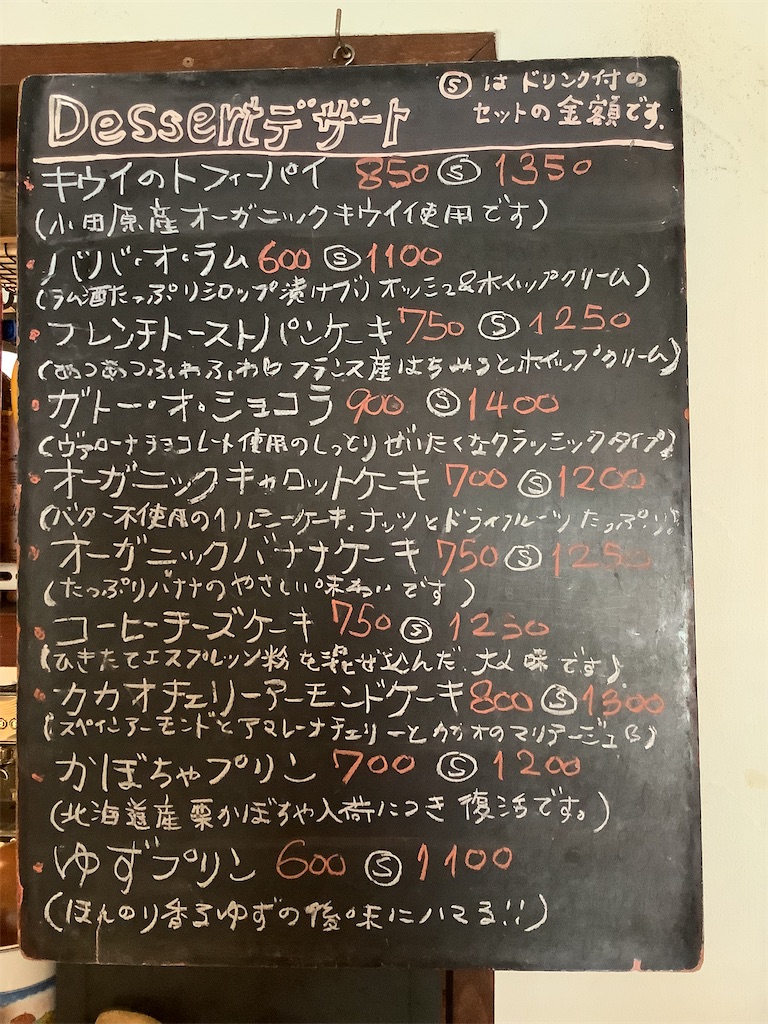 Dessertデザート
Ⓢ はドリンク付の
セットの金額です。
キウイのトフィーパイ 850 Ⓢ 1350
(小田原産オーガニックキウイ使用です)
ババ・オ・ラム 600 Ⓢ 1100
(ラム酒たっぷりシロップ漬けブリオッシュ&ホイップクリーム)
フレンチトーストパンケーキ 750 Ⓢ 1250
(あつあつふわふわ フランス産はちみつとホイップクリーム)
ガトー・オ・ショコラ 900 Ⓢ 1400
(ヴァローナチョコレート使用のしっとりぜいたくなクラッシックタイプ)
オーガニックキャロットケーキ 700 Ⓢ 1200
(バター不使用のヘルシーケーキ、ナッツとドライフルーツたっぷり)
オーガニックバナナケーキ 750 Ⓢ 1250
(たっぷりバナナのやさしい味わいです)
コーヒーチーズケーキ 750 Ⓢ 1250
(ひきたてエスプレッソ粉を混ぜ込んだ、大人味です)
カカオチェリーアーモンドケーキ 800 Ⓢ 1300
(スペインアーモンドとアマレーナチェリーとカカオのマリアージュ)
かぼちゃプリン 700 Ⓢ 1200
(北海道産栗かぼちゃ入荷につき復活です。)
ゆずプリン 600 Ⓢ 1100
(ほんのり香るゆずの後味にハマる!!)